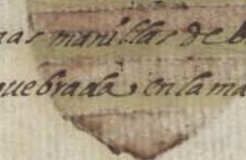 nas manillas de b
quebrada en la ma